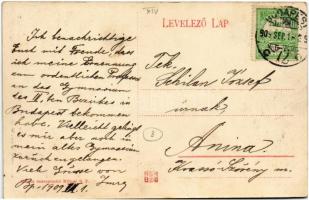 XIV
LEVELEZŐ LAP
Ich benachrichtige
Euch mit Freude, dass
ich meine Ernennung
zum ordentlichen Professor
an das Gymnasium
des II. ten Bezirkes in
Budapest bekommen
habe. Vielleicht gelingt
es mir aber noch in
mein altes Gymnasium
zurück zu gelangen.
Viele Grüsse von
Bp. 1909 IX 1.
Tek.
Schilan József
úrnak
Anina
Krassó-Szörény m.